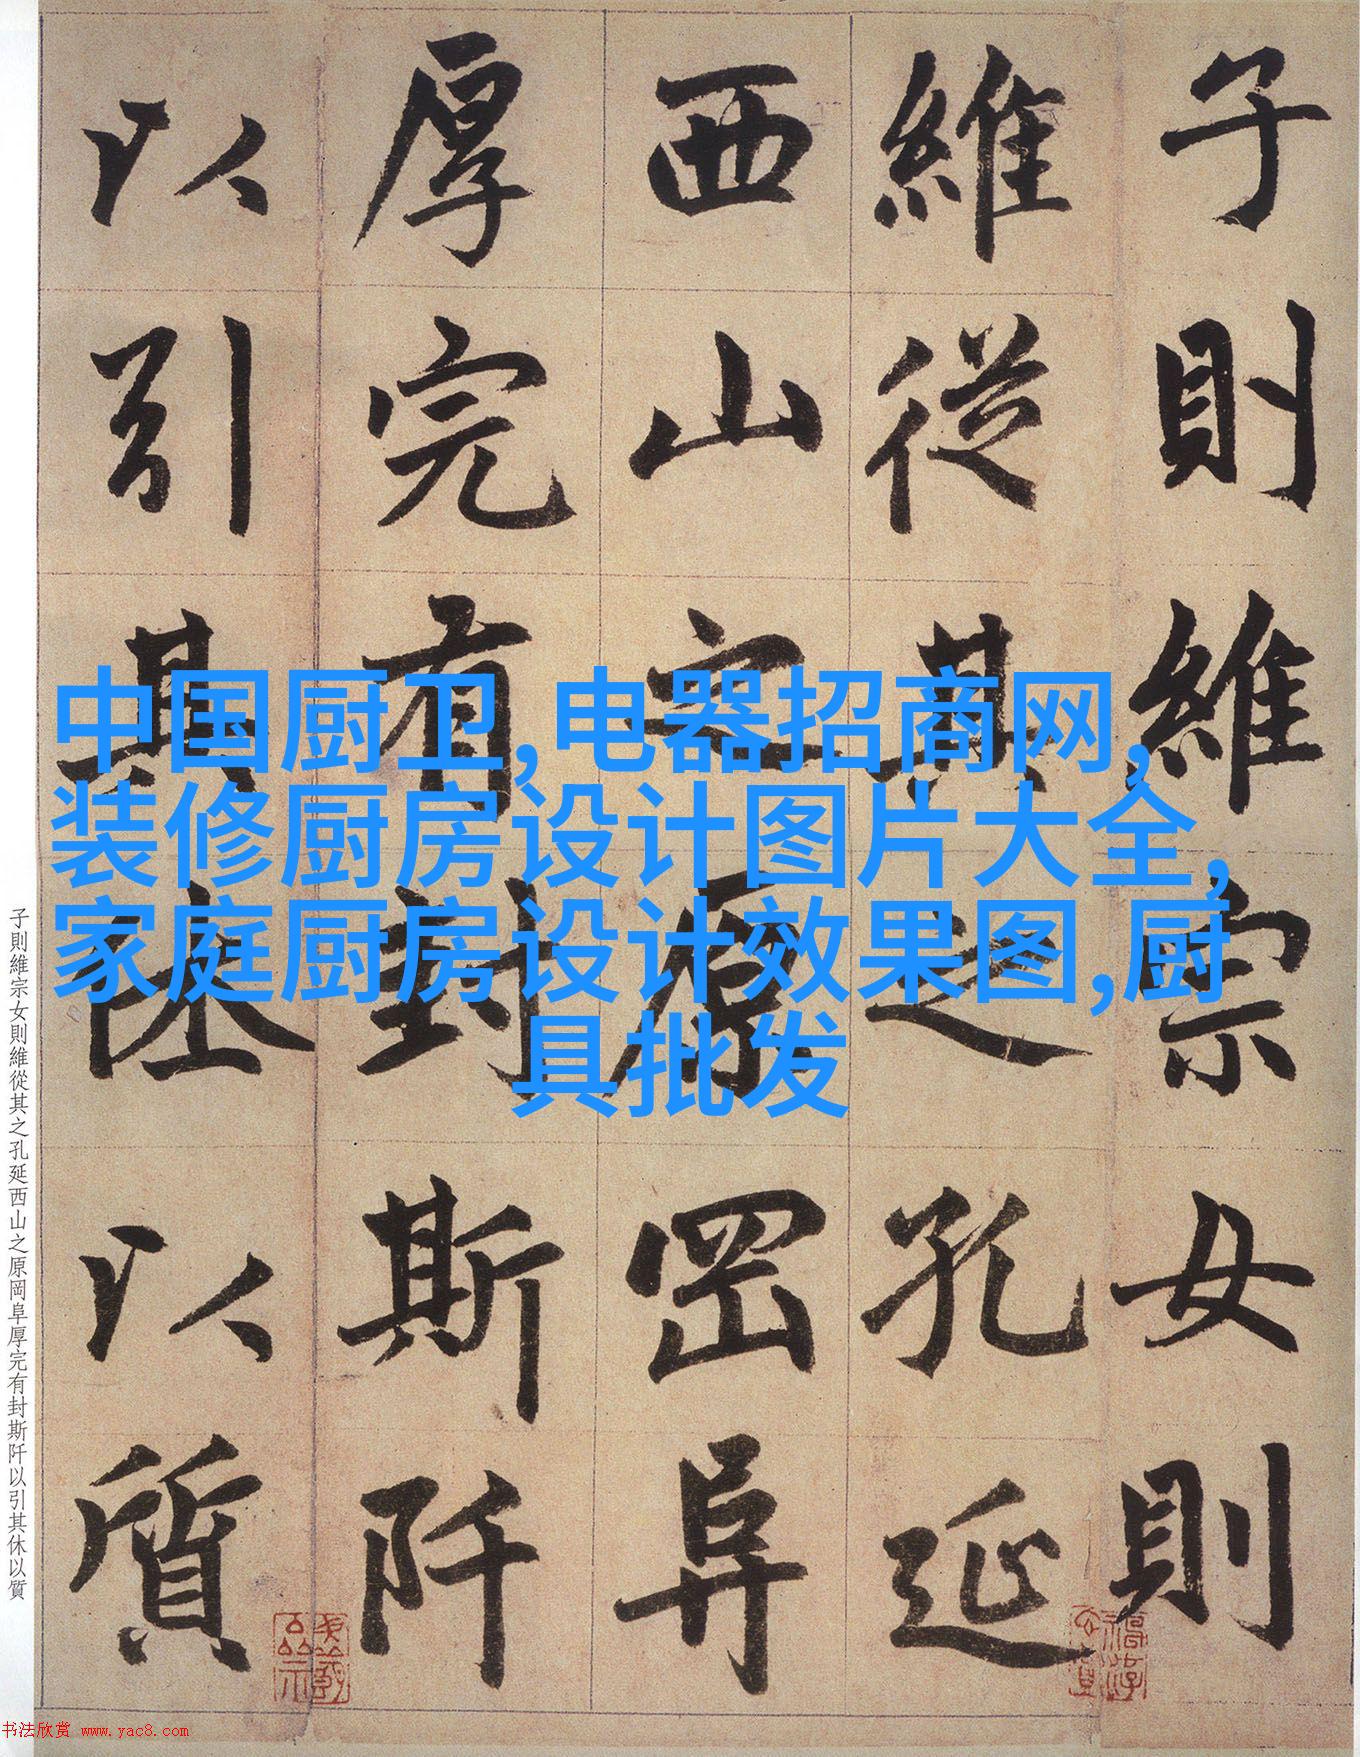 子則維宗女則
維從其之孔延
西山之原岡阜
厚完有封斯阡
以引其休以質
中国厨卫,电器招商网,
装修厨房设计图片大全,
家庭厨房设计效果图,厨
具批发
子則維宗女則維從其之孔延西山之原岡阜厚完有封斯阡以引其休以質
书法欣赏 www.yac8.com